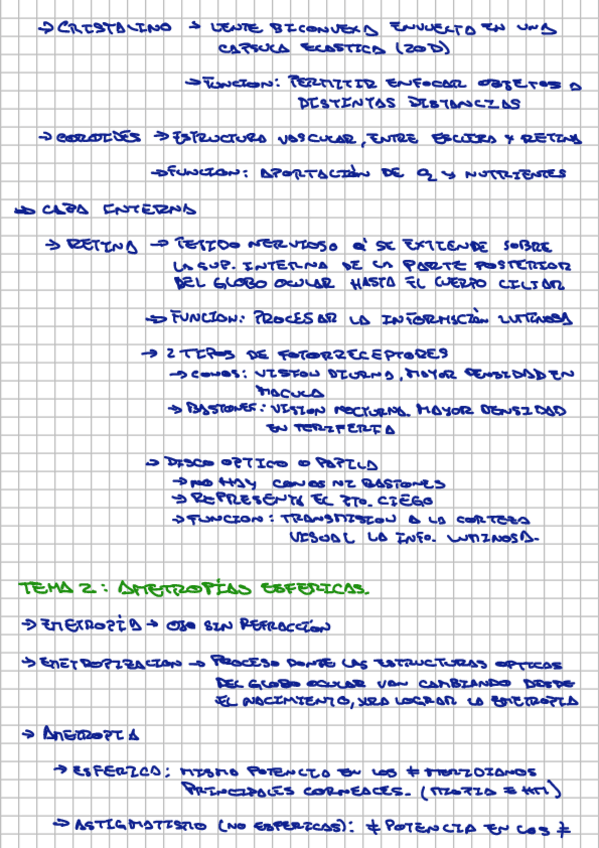 → CRISTALINO → LENTE BICONVEXA ENVUELTA EN UNA
CAPSULA ELASTICA (20D)
→ FUNCION: PERMITIR ENFOCAR OBJETOS A
DISTINTAS DISTANCIAS
→ COROIDES → ESTRUCTURA VASCULAR, ENTRE ESCLERA Y RETINA
→ FUNCION: APORTACIÓN DE O₂ Y NUTRIENTES
→ CAPA INTERNA
→ RETINA → TEJIDO NERVIOSO Q' SE EXTIENDE SOBRE
LA SUP. INTERNA DE LA PARTE POSTERIOR
DEL GLOBO OCULAR HASTA EL CUERPO CILIAR
→ FUNCION: PROCESAR LA INFORMACIÓN LUMINOSA
→ 2 TIPOS DE FOTORRECEPTORES
→ CONOS: VISION DIURNA, MAYOR DENSIDAD EN
MACULA
→ BASTONES: VISION NOCTURNA. MAYOR DENSIDAD
EN PERIFERIA
→ DISCO OPTICO O PAPILA
→ NO HAY CONOS NI BASTONES
→ REPRESENTA EL PTO. CIEGO
→ FUNCION: TRANSMISION A LA CORTEZA
VISUAL LA INFO. LUMINOSA.
TEMA 2: AMETROPÍAS ESFERICAS.
→ EMETROPÍA → OJO SIN REFRACCIÓN
→ EMETROPIZACION → PROCESO DONDE LAS ESTRUCTURAS OPTICAS
DEL GLOBO OCULAR VAN CAMBIANDO DESDE
EL NACIMIENTO, LOGRAR LA EMETROPIA
→ AMETROPIA
→ ESFERICA: MISMA POTENCIA EN LOS ≠ MERIDIANOS
PRINCIPALES CORNEALES. (MIOPIA E HM)
→ ASTIGMATISMO (NO ESFERICAS): ≠ POTENCIA EN LOS ≠